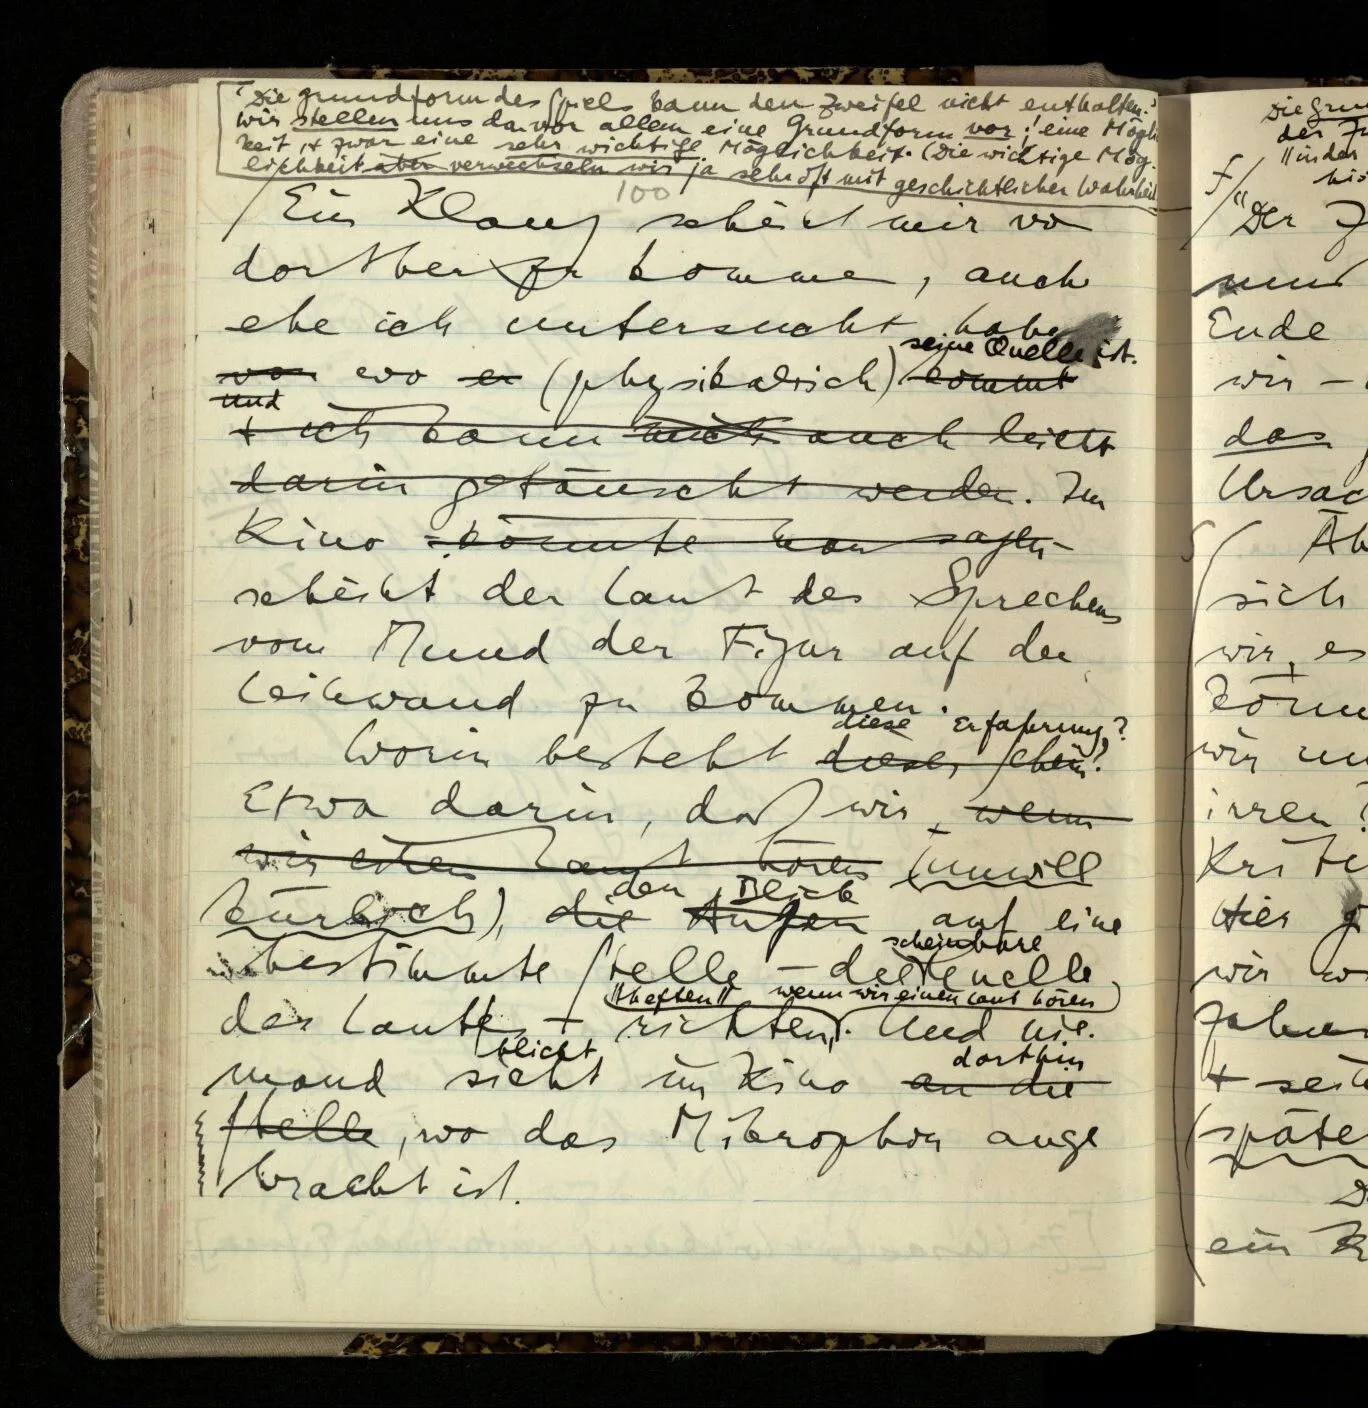 "Die Grundform des Spiels kann den Zweifel nicht enthalten."
Wir stellen uns da vor allem eine Grundform vor: eine Möglich
keit, & zwar eine sehr wichtige Möglichkeit. (Die wichtige Mög-
lichkeit aber verwechseln wir ja sehr oft mit geschichtlicher Wahrheit
100
/ Ein Klang scheint mir von
dorther zu kommen, auch
ehe ich untersucht habe
seine Quelle ist.
von wo er (physikalisch) kommt
und
+ ich kann mich auch leicht
darin getäuscht werden. Im
Kino könnte man sagen
scheint der Laut des Sprechens
vom Mund der Figur auf der
Leinwand zu kommen.
diese Erfahrung?
Worin besteht dieser Schein?
Etwa darin, daß wir, wenn
wir einen Laut hören (unwill
den Blick
kürlich), die Augen auf eine
scheinbare
bestimmte Stelle – die Quelle
"heften" wenn wir einen Laut hören)
des Lauts – richten. Und nie-
blickt dorthin
mand sieht im Kino an die
Stelle, wo das Mikrophon ange
bracht ist.
Die Grun
der
"in der
his
F /
"Der Z
und
Ende
wir –
das
Ursac
S (
sich
wir, es
könn
wir un
irren?
Krite
Hier g
wir w
Jahr
+ sei
(späte
D
ein K